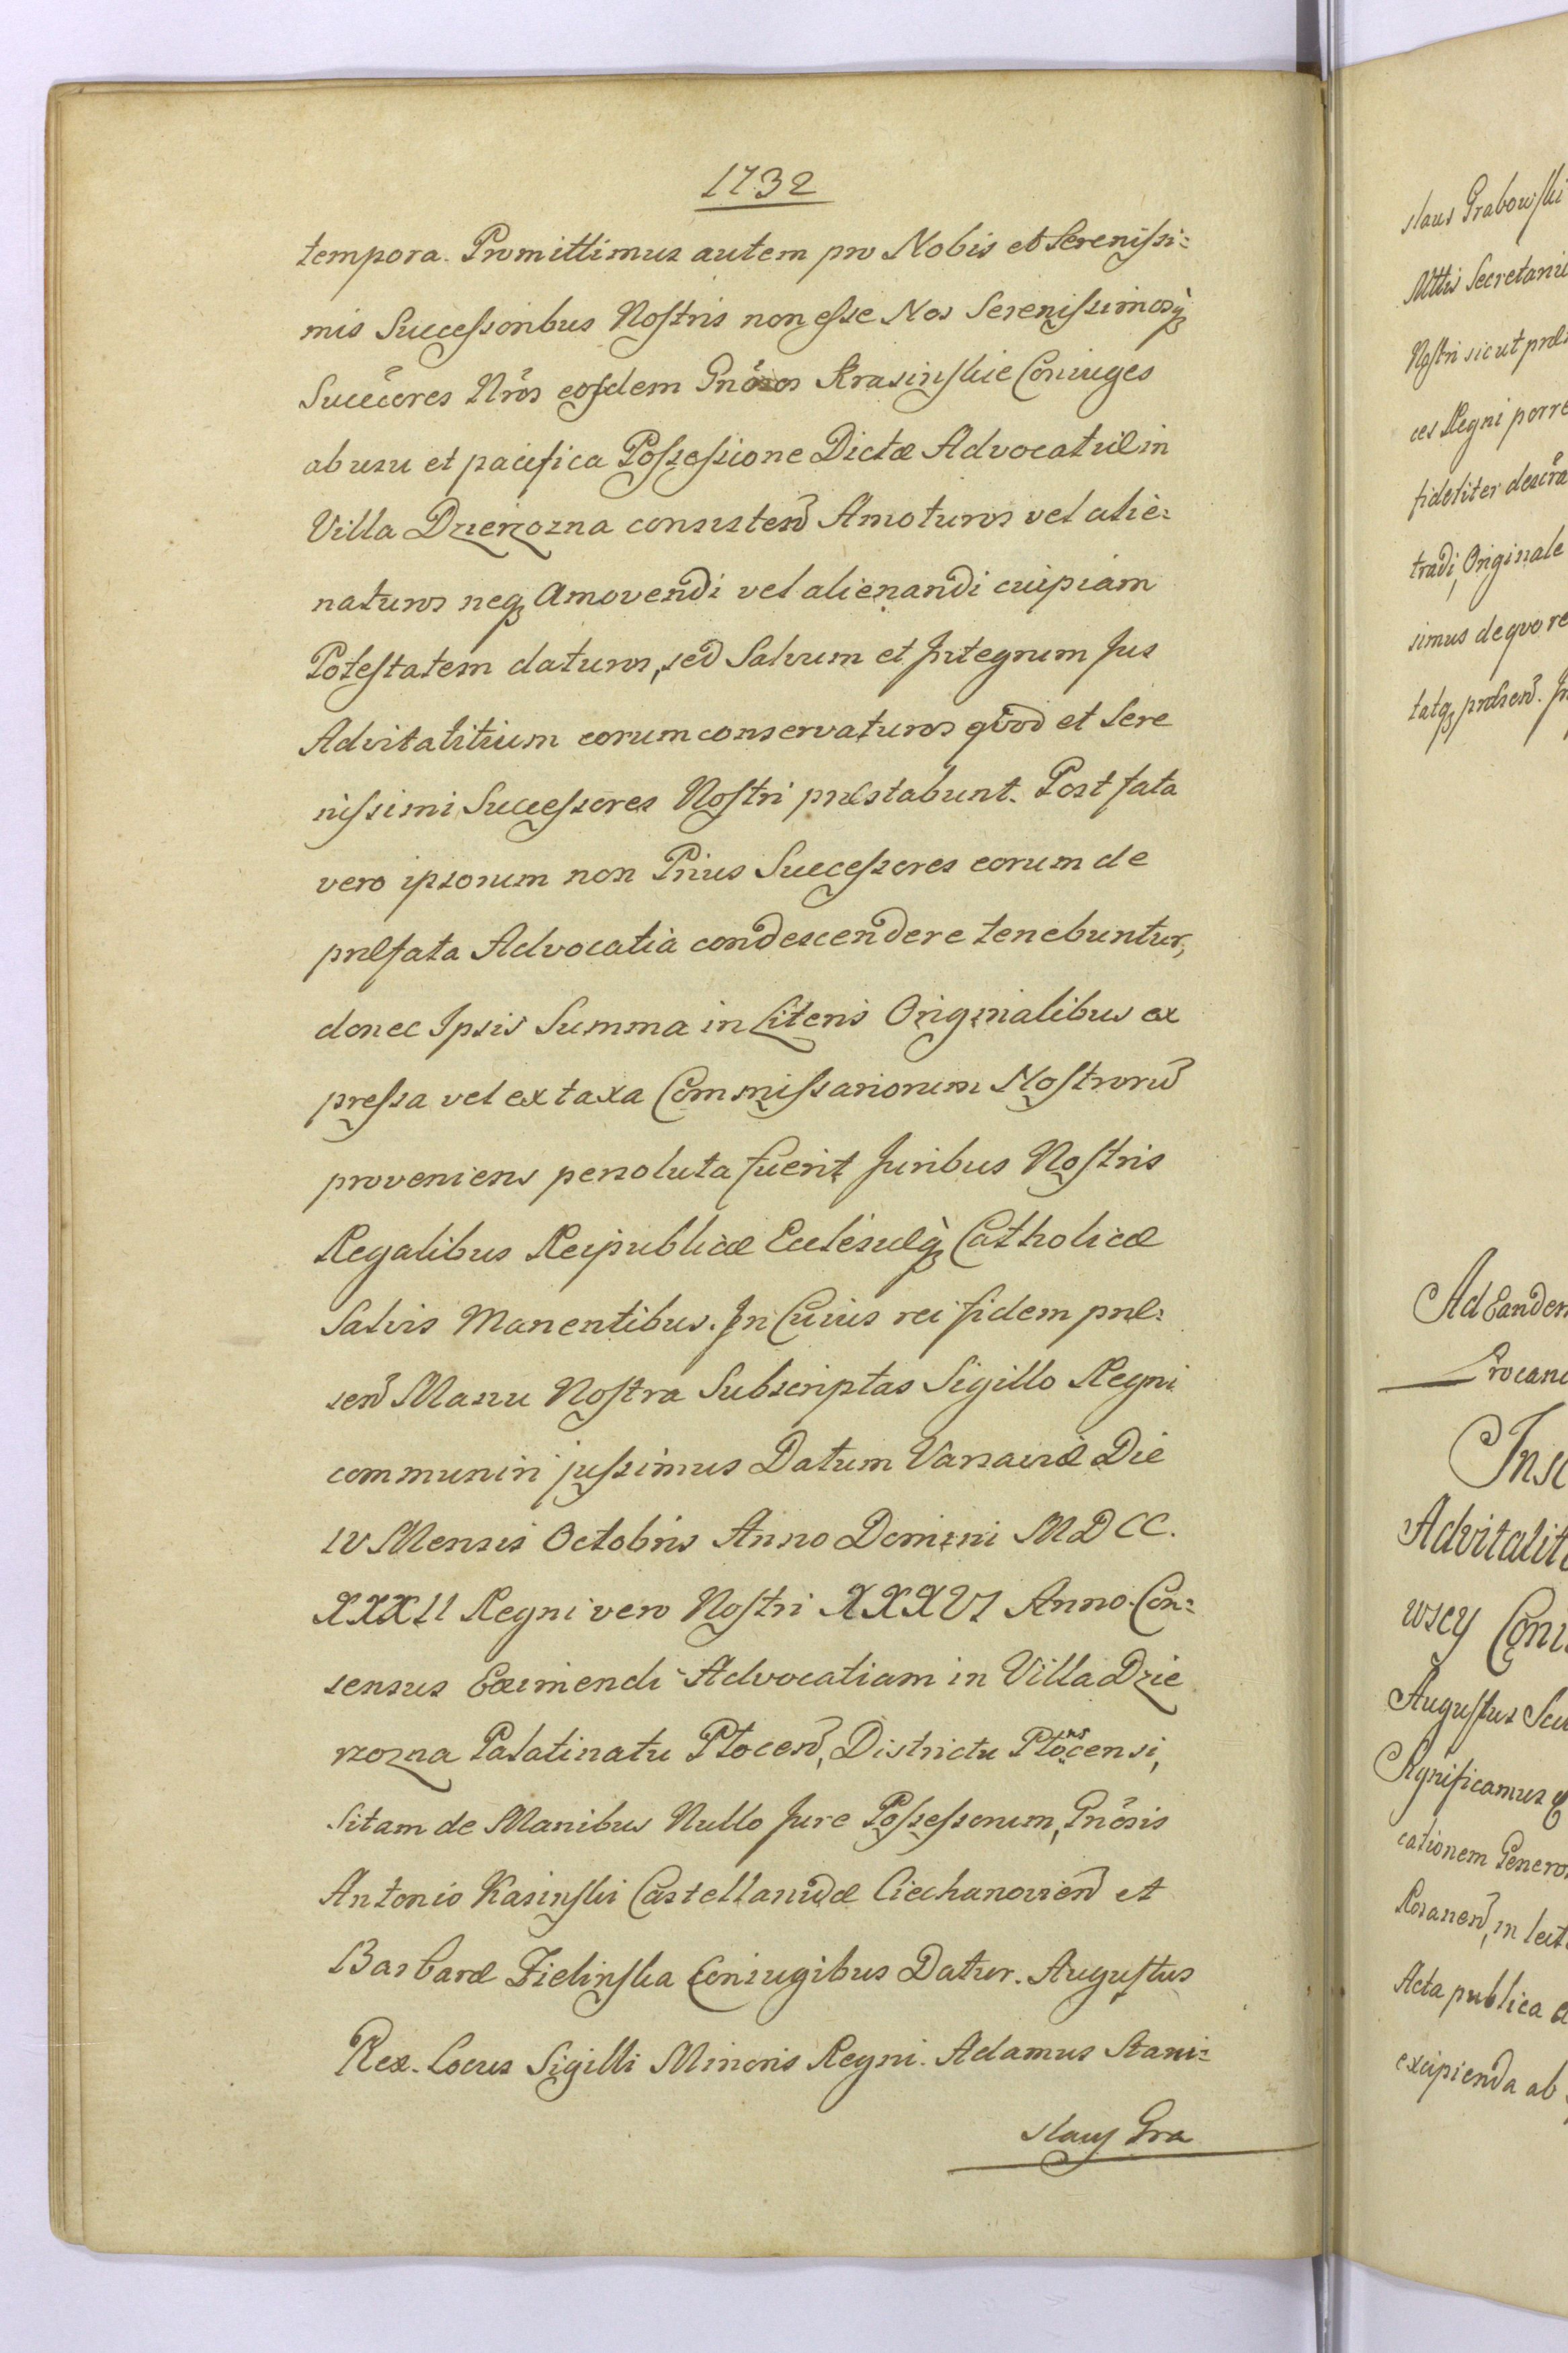 1732
tempora. Promittimus autem pro Nobis et Serenissi=
mis Successoribus Nostris non esse Nos Serenissimosq̀
Succ̃ores Nr̃os eosdem Gnõsos Krasinskie Coniuges
ab usu et pacifica Possessione Dictæ Advocatiæ in
Villa Dzierzozna consisteñ Amoturos vel alie=
naturos neq Amovendi vel alienandi cuipiam
Potestatem daturos, sed Salvum et Integrum Jus
Advitalitium eorum conservaturos qvod et Sere
nissimi Successores Nostri præstabunt. Post fata
vero ipsorum non Prius Successores eorum de
præfata Advocatia condescendere tenebuntur,
donec Ipsis Summa in Literis Originalibus ex
pressa vel ex taxa Commissariorum Nostrorũ
proveniens persoluta fuerit Juribus Nostris
Regalibus Reipublicæ Ecclesiæq̀ Catholicæ
Salvis Manentibus. In Cuius rei fidem præ=
señ Manu Nostra Subscriptas Sigillo Regni
communiri jussimus Datum Varsaviæ Die
IV Mensis Octobris Anno Domini MDCC.
XXXII Regni vero Nostri XXXVI Anno. Con=
sensus Eximendi Advocatiam in Villa Dzie
rzozna Palatinatu Ploceñ, Districtu Plocensi,
Sitam de Manibus Nullo Jure Possessorum, Gnõsis
Antonio Kasinski Castellanidæ Ciechanovieñ et
Barbaræ Zielinska Coniugibus Datur. Augustus
Rex. Locus Sigilli Minoris Regni. Adamus Stani=
slaus Gra
slaus Grabowski
Mttis Secretariu
Nostri sicut præ
ces Regni porre
fideliter descr̃a
tradi, Originale
simus de quo re
tatq præseñ. In
Ad Eandem
Insc
Advitalit
wscy Coni
Augustus Secu
Significamus
cationem Genero
Rosaneñ, in lect
Acta publica
excipienda ab